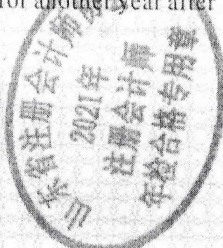 for another year after
山东省注册会计师
2021年
注册会计师
年检合格专用章